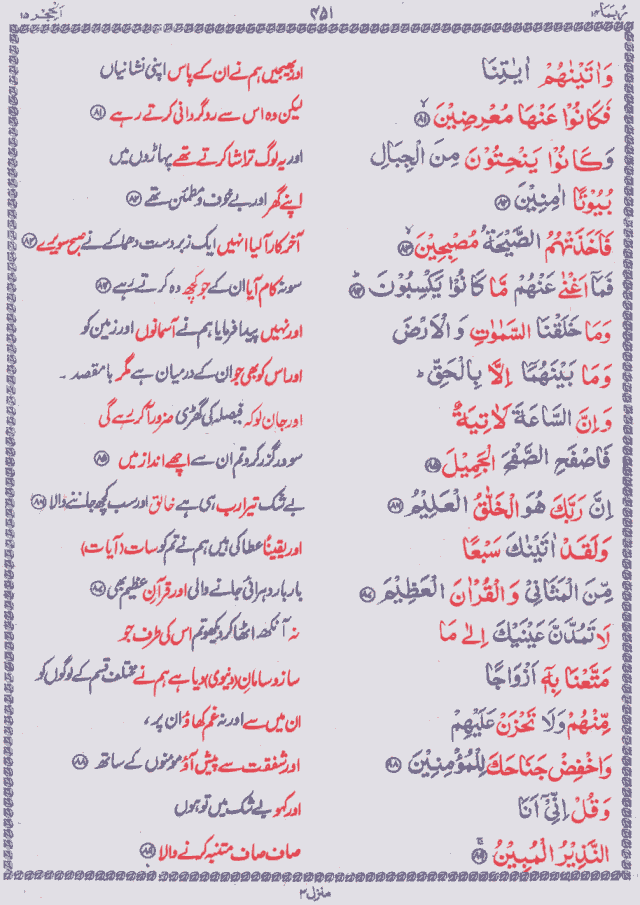 رُبَمَا ۱۴
۴۵۱
اَلْحِجْر ۱۵
وَاٰتَيْنٰهُمْ اٰيٰتِنَا
اور بھیجیں ہم نے ان کے پاس اپنی نشانیاں
فَكَانُوْا عَنْهَا مُعْرِضِيْنَ ۙ﴿۸۱﴾
لیکن وہ اس سے روگردانی کرتے رہے ﴿۸۱﴾
وَكَانُوْا يَنْحِتُوْنَ مِنَ الْجِبَالِ
اور یہ لوگ تراشا کرتے تھے پہاڑوں میں
بُيُوْتًا اٰمِنِيْنَ ﴿۸۲﴾
اپنے گھر اور بے خوف و مطمئن تھے ﴿۸۲﴾
فَاَخَذَتْهُمُ الصَّيْحَةُ مُصْبِحِيْنَ ۙ﴿۸۳﴾
آخر کار آ لیا انہیں ایک زبردست دھماکے نے صبح سویرے ﴿۸۳﴾
فَمَاۤ اَغْنٰى عَنْهُمْ مَّا كَانُوْا يَكْسِبُوْنَ ؕ﴿۸۴﴾
سو نہ کام آیا ان کے جو کچھ وہ کرتے رہے ﴿۸۴﴾
وَمَا خَلَقْنَا السَّمٰوٰتِ وَالْاَرْضَ
اور نہیں پیدا فرمایا ہم نے آسمانوں اور زمین کو
وَمَا بَيْنَهُمَاۤ اِلَّا بِالْحَقِّ ؕ
اور اس کو بھی جو ان کے درمیان ہے مگر بامقصد ۔
وَاِنَّ السَّاعَةَ لَاٰتِيَةٌ
اور جان لو کہ فیصلہ کی گھڑی ضرور آ کر رہے گی
فَاصْفَحِ الصَّفْحَ الْجَمِيْلَ ﴿۸۵﴾
سو درگزر کرو تم ان سے اچھے انداز میں ﴿۸۵﴾
اِنَّ رَبَّكَ هُوَ الْخَلّٰقُ الْعَلِيْمُ ﴿۸۶﴾
بے شک تیرا رب ہی ہے خالق اور سب کچھ جاننے والا ﴿۸۶﴾
وَلَقَدْ اٰتَيْنٰكَ سَبْعًا
اور یقیناً عطا کی ہیں ہم نے تم کو سات (آیات)
مِّنَ الْمَثَانِيْ وَالْقُرْاٰنَ الْعَظِيْمَ ﴿۸۷﴾
بار بار دہرائی جانے والی اور قرآنِ عظیم بھی ﴿۸۷﴾
لَا تَمُدَّنَّ عَيْنَيْكَ اِلٰى مَا
نہ آنکھ اٹھا کر دیکھو تم اس کی طرف جو
مَتَّعْنَا بِهٖۤ اَزْوَاجًا
ساز و سامانِ (دنیوی) دیا ہے ہم نے مختلف قسم کے لوگوں کو
مِّنْهُمْ وَلَا تَحْزَنْ عَلَيْهِمْ
ان میں سے اور نہ غم کھاؤ ان پر،
وَاخْفِضْ جَنَاحَكَ لِلْمُؤْمِنِيْنَ ﴿۸۸﴾
اور شفقت سے پیش آؤ مومنوں کے ساتھ ﴿۸۸﴾
وَقُلْ اِنِّيْۤ اَنَا
اور کہو بے شک میں تو ہوں
النَّذِيْرُ الْمُبِيْنُ ﴿۸۹﴾
صاف صاف متنبہ کرنے والا ﴿۸۹﴾
منزل ۳